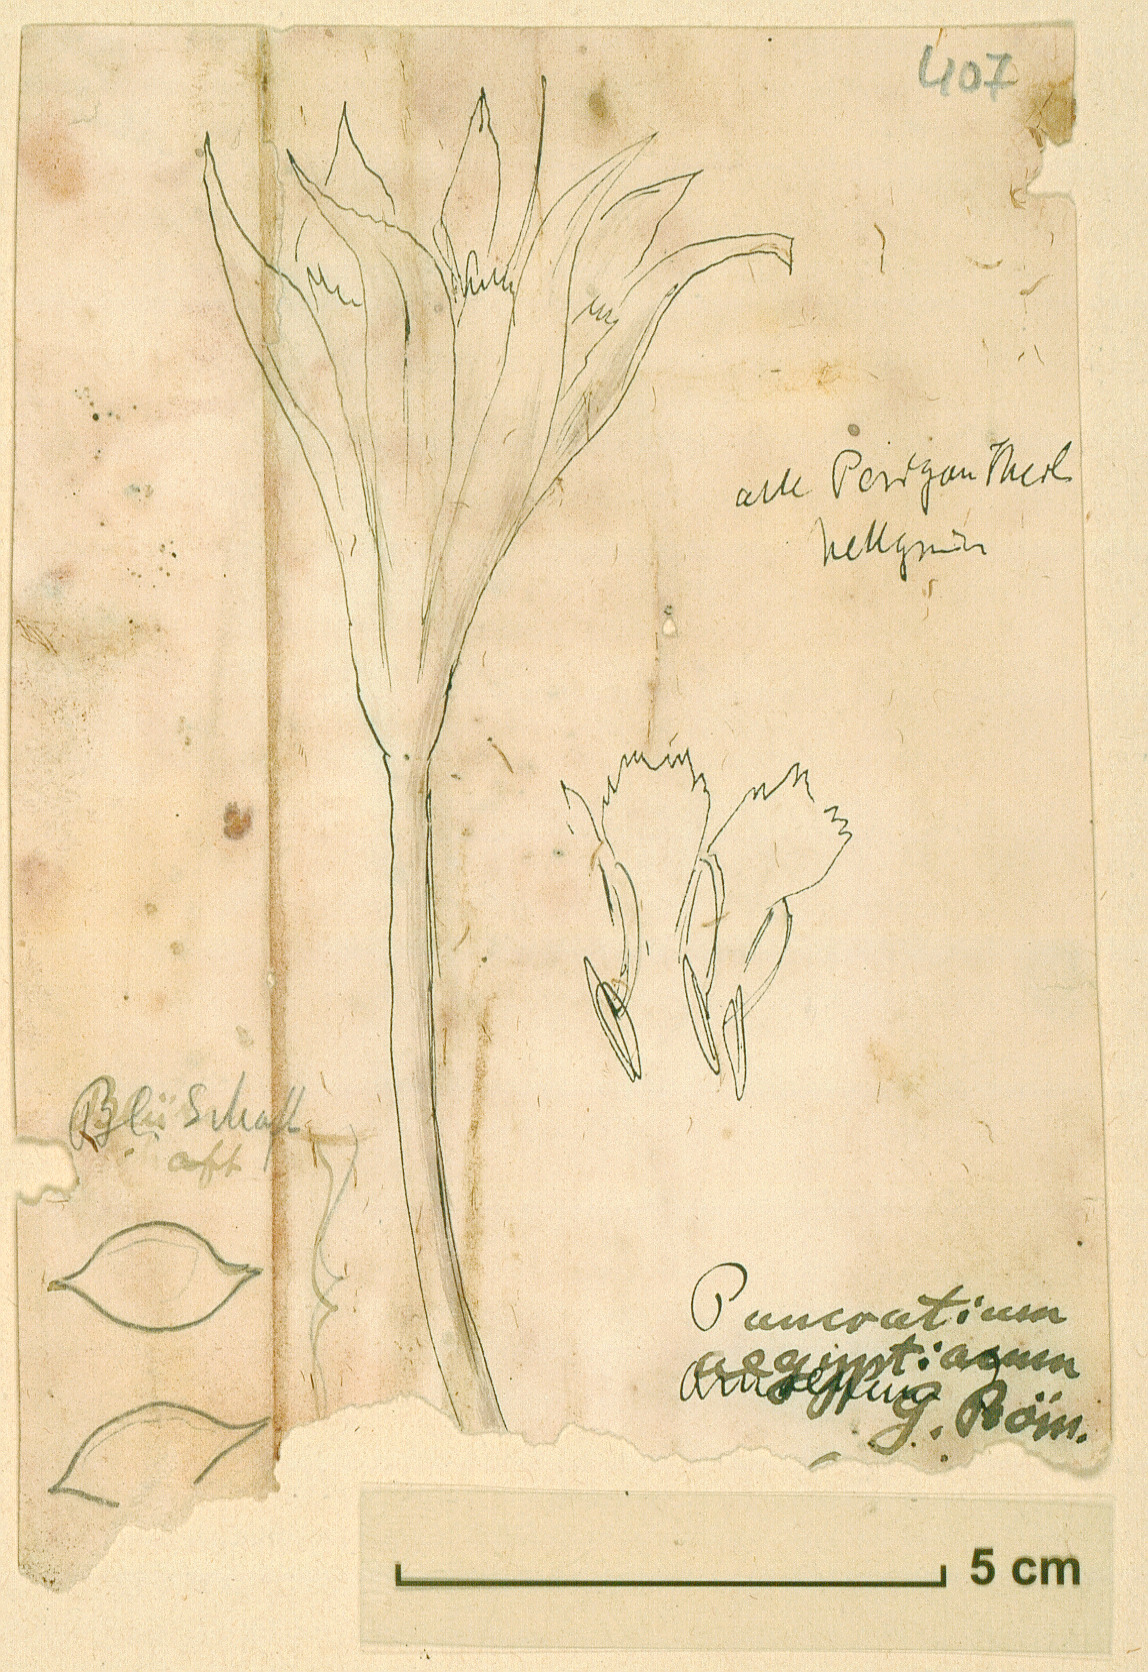 407
alle Perigon Theil
hellgrün
Blü Schaft
oft
Pancratium
aegyptiacum
G. Röm.
5 cm